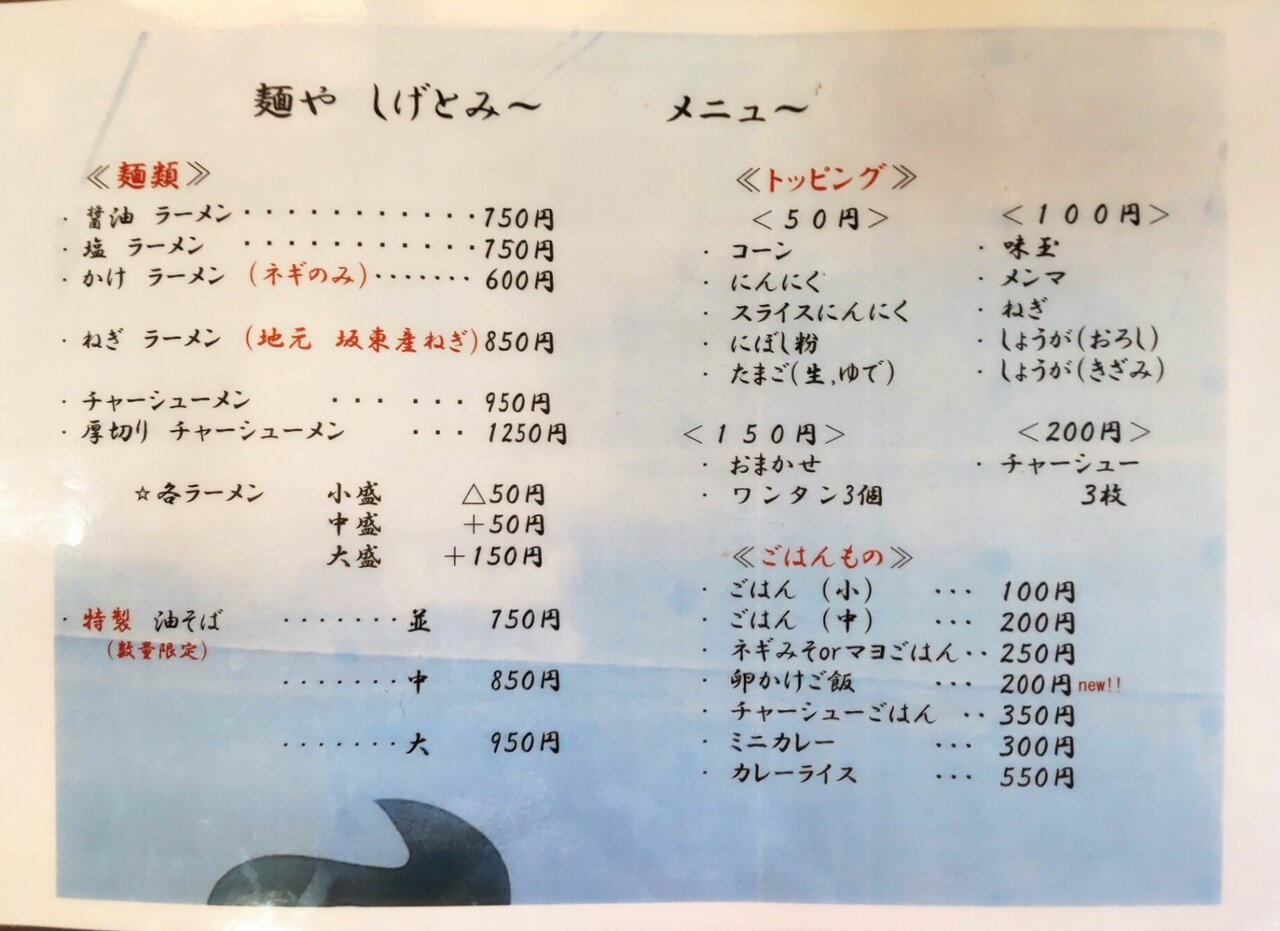 麺や しげとみ～ メニュー～
≪麺類≫
・醤油 ラーメン・・・・・・・・・・・・750円
・塩 ラーメン ・・・・・・・・・・・・750円
・かけ ラーメン (ネギのみ)・・・・・・・600円
・ねぎ ラーメン (地元 坂東産ねぎ)850円
・チャーシューメン ・・・ ・・・950円
・厚切り チャーシューメン ・・・1250円
☆各ラーメン 小盛 △50円
中盛 ＋50円
大盛 ＋150円
・特製 油そば ・・・・・・・並 750円
(数量限定)
・・・・・・・中 850円
・・・・・・・大 950円
≪トッピング≫
＜50円＞
・コーン
・にんにく
・スライスにんにく
・にぼし粉
・たまご(生,ゆで)
＜100円＞
・味玉
・メンマ
・ねぎ
・しょうが(おろし)
・しょうが(きざみ)
＜150円＞
・おまかせ
・ワンタン3個
＜200円＞
・チャーシュー
3枚
≪ごはんもの≫
・ごはん (小) ・・・ 100円
・ごはん (中) ・・・ 200円
・ネギみそorマヨごはん・・250円
・卵かけご飯 ・・・ 200円new!!
・チャーシューごはん ・・350円
・ミニカレー ・・・ 300円
・カレーライス ・・・ 550円